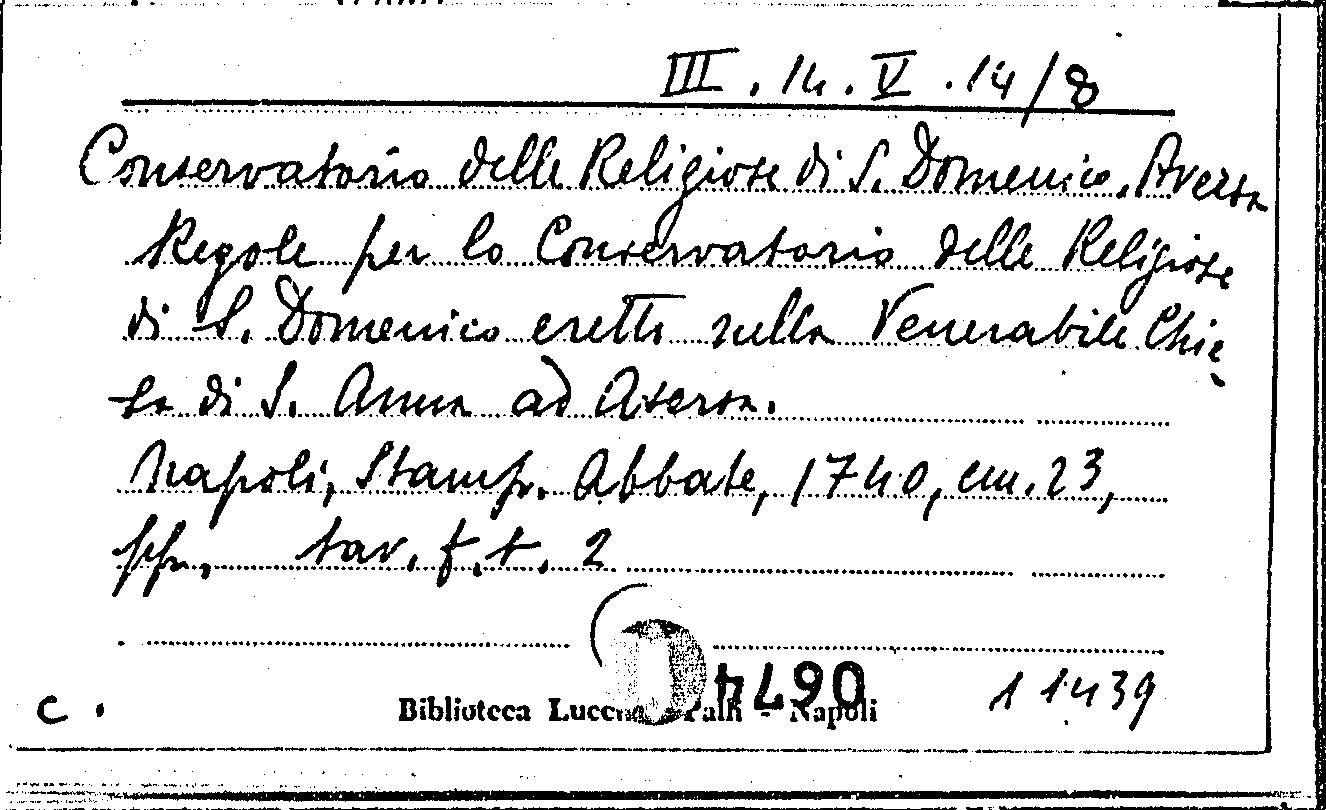 III. 14. V. 14/8
Conservatorio delle Religiose di S. Domenico. Aversa
Regole per lo Conservatorio delle Religiose
di S. Domenico eretto sulla Venerabile Chie
sa di S. Anna ad Aversa.
Napoli, Stamp. Abbate, 1740, cm. 23,
pp. tav. f. t. 2
4790
c. Biblioteca Lucchesi Palli - Napoli 11439